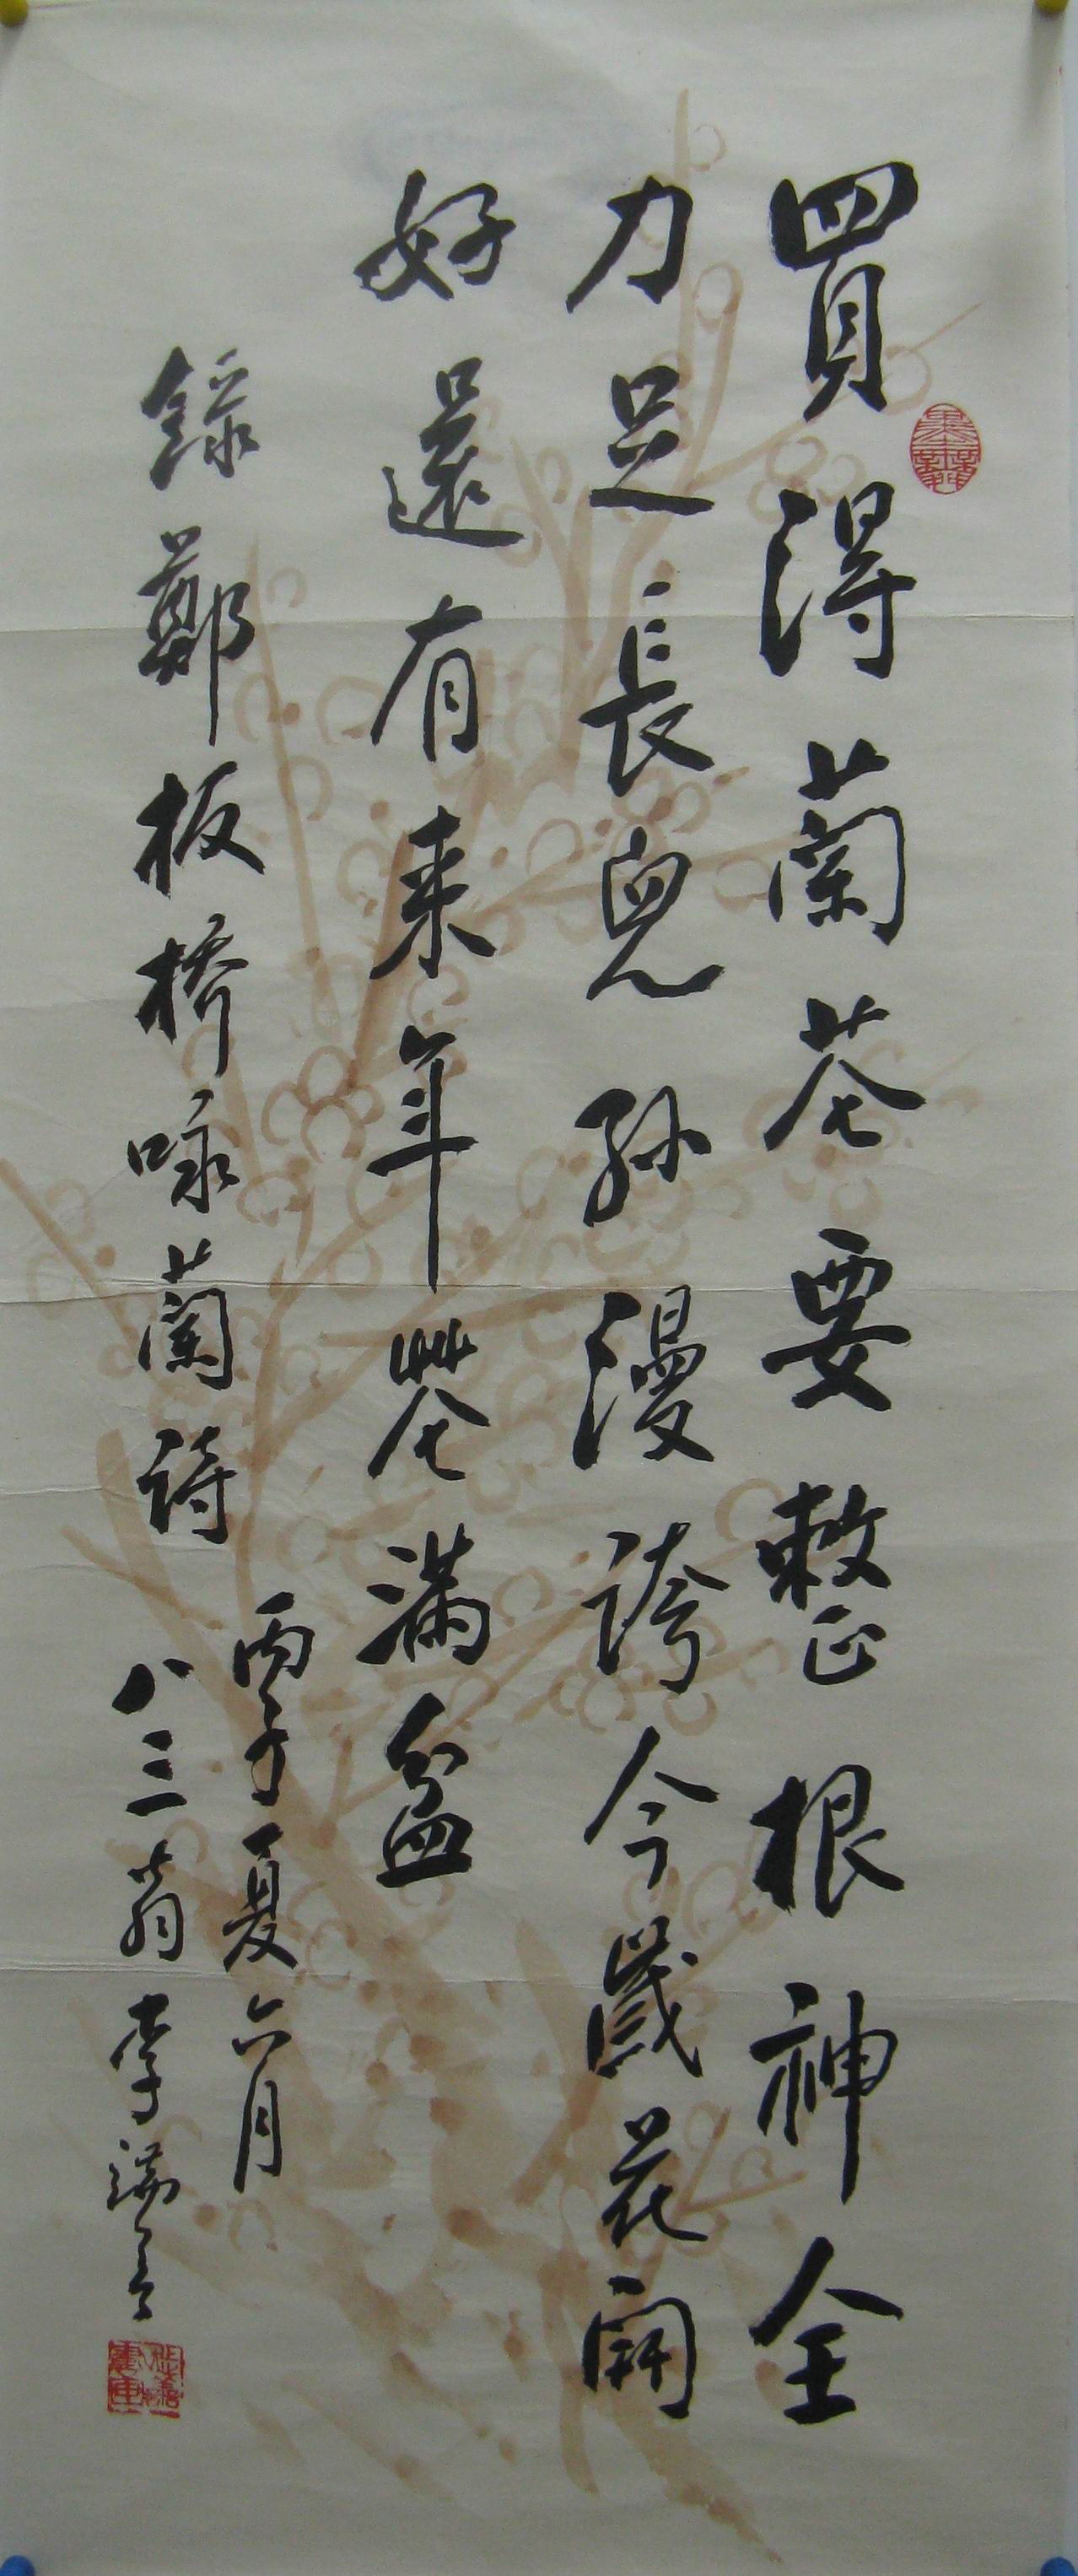 買得蘭花要整根神全
力足長兒孫漫誇今歲花開
好還有來年花滿盆
錄鄭板橋咏蘭詩
丙子夏六月
八三翁李瑞